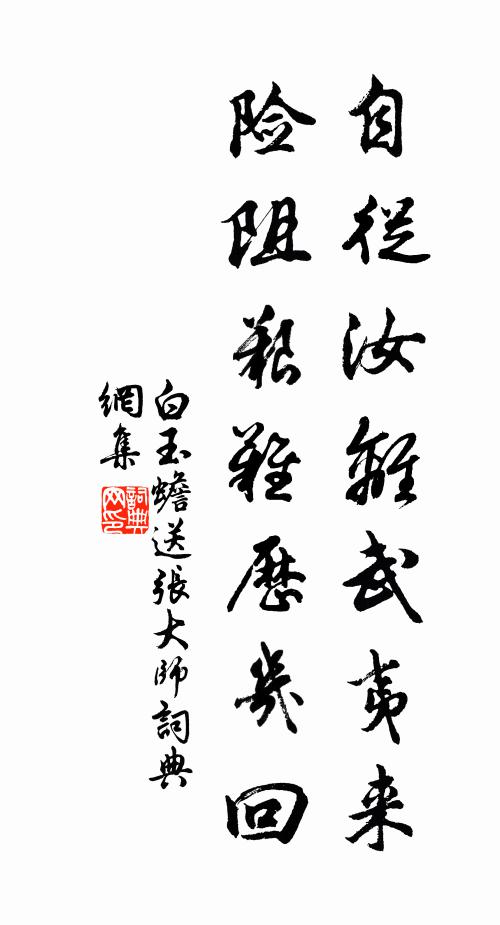 自從汝離武夷来
险阻艱難歷幾回
白玉蟾送張大師詞典
網集
詞典
网印